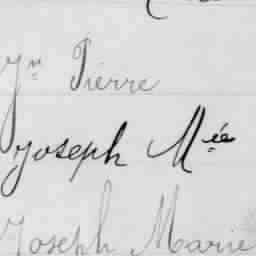 Jn Pierre
Joseph Mée
Joseph Marie